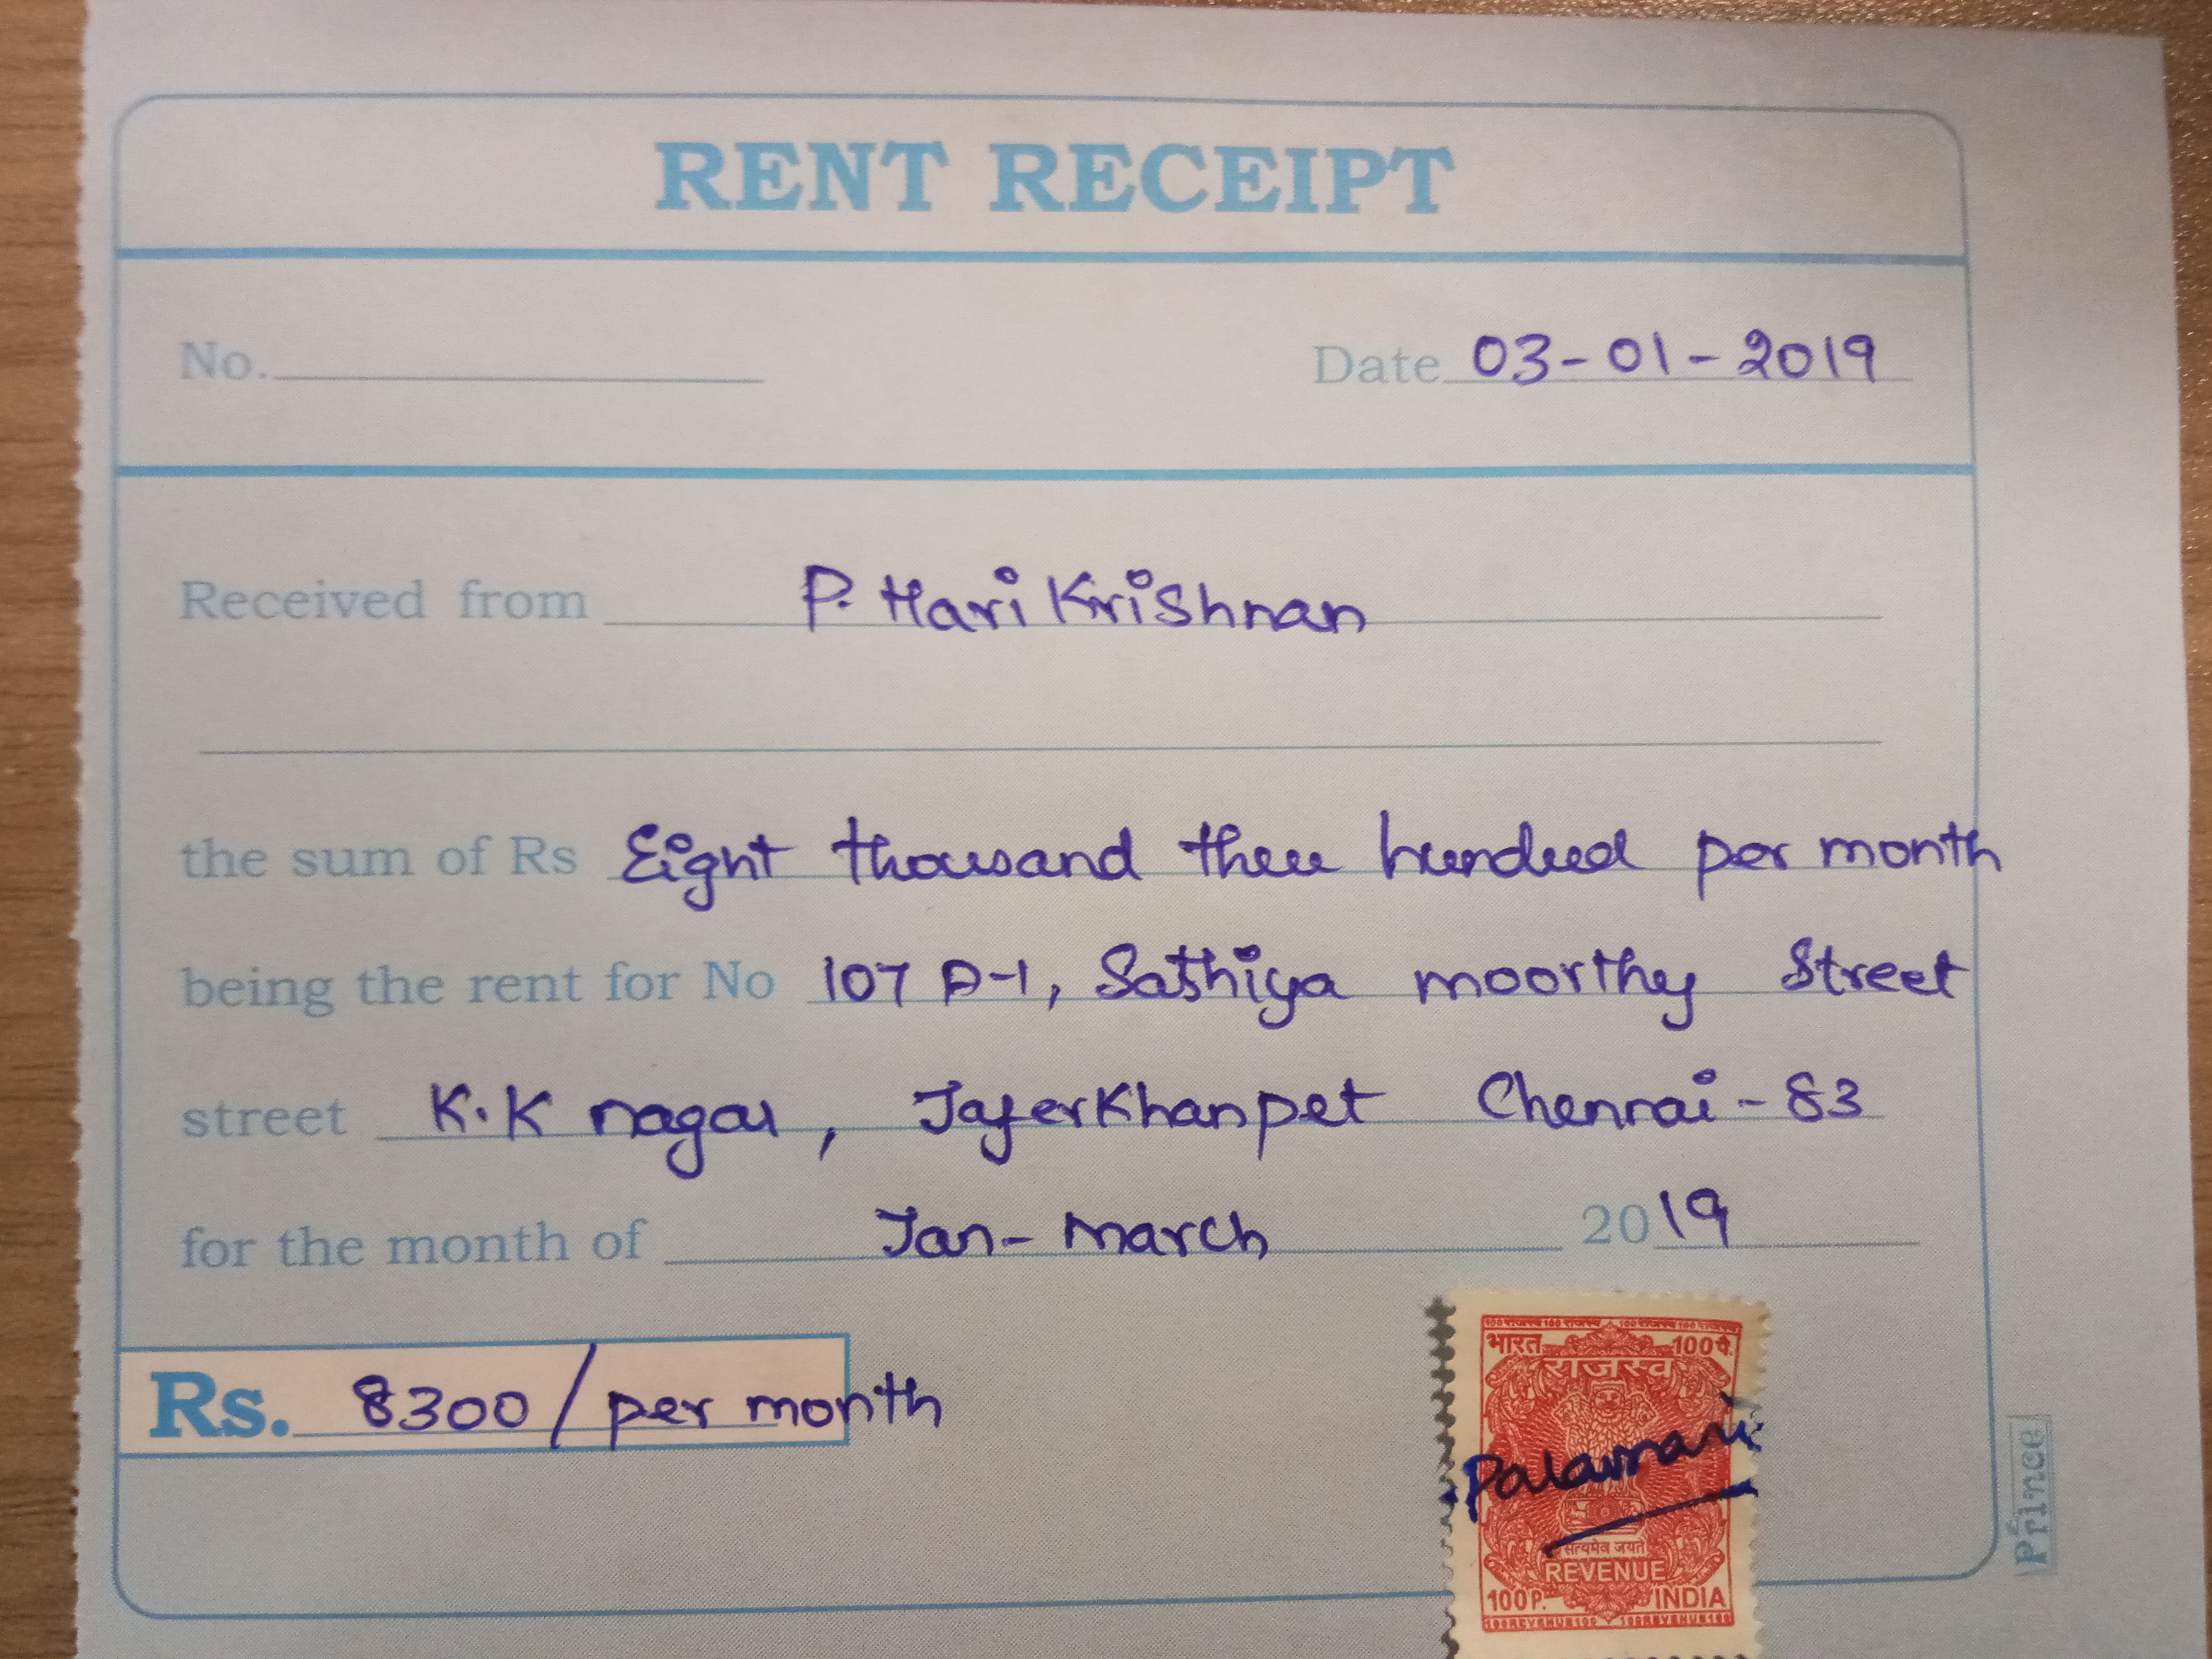 RENT RECEIPT
No. Date 03-01-2019
Received from P. Hari Krishnan
the sum of Rs Eight thousand three hundred per month
being the rent for No 107 D-1, Sathiya moorthy Street
street K.K nagar, Jaferkhanpet Chennai-83
for the month of Jan-March 2019
Rs. 8300/per month
भारत 100पै.
राजस्व
सत्यमेव जयते
REVENUE
100P. INDIA
Prince